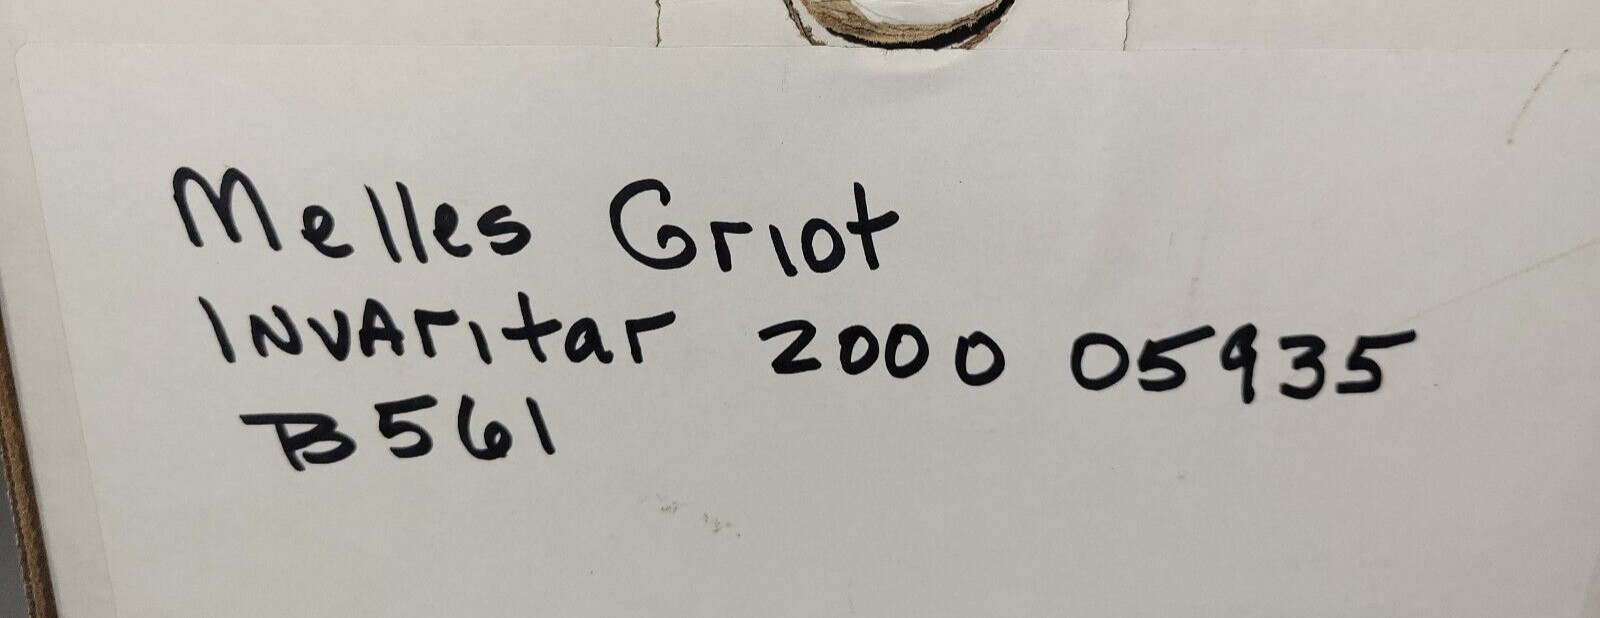 Melles Griot
INVAritar 2000 05935
B561